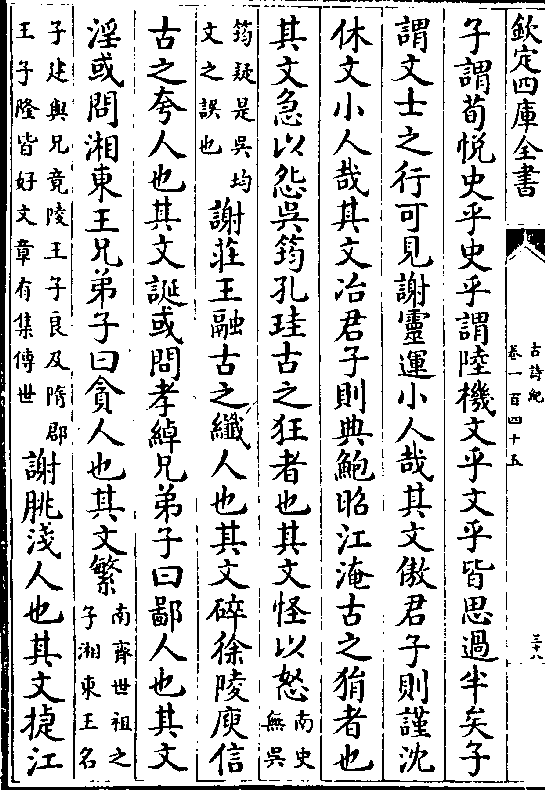 欽定四庫全書
古詩紀
卷一百四十五
三十八
子謂荀悅史乎史乎謂陸機文乎文乎皆思過半矣子
謂文士之行可見謝靈運小人哉其文傲君子則謹沈
休文小人哉其文冶君子則典鮑昭江淹古之狷者也
其文急以怨吳筠孔珪古之狂者也其文怪以怒南史無吳
筠疑是吳均文之誤也謝莊王融古之纖人也其文碎徐陵庾信
古之夸人也其文誕或問孝綽兄弟子曰鄙人也其文
淫或問湘東王兄弟子曰貪人也其文繁南齊世祖之子湘東王名
子建與兄竟陵王子良及隋郡王子隆皆好文章有集傳世謝朓淺人也其文捷江